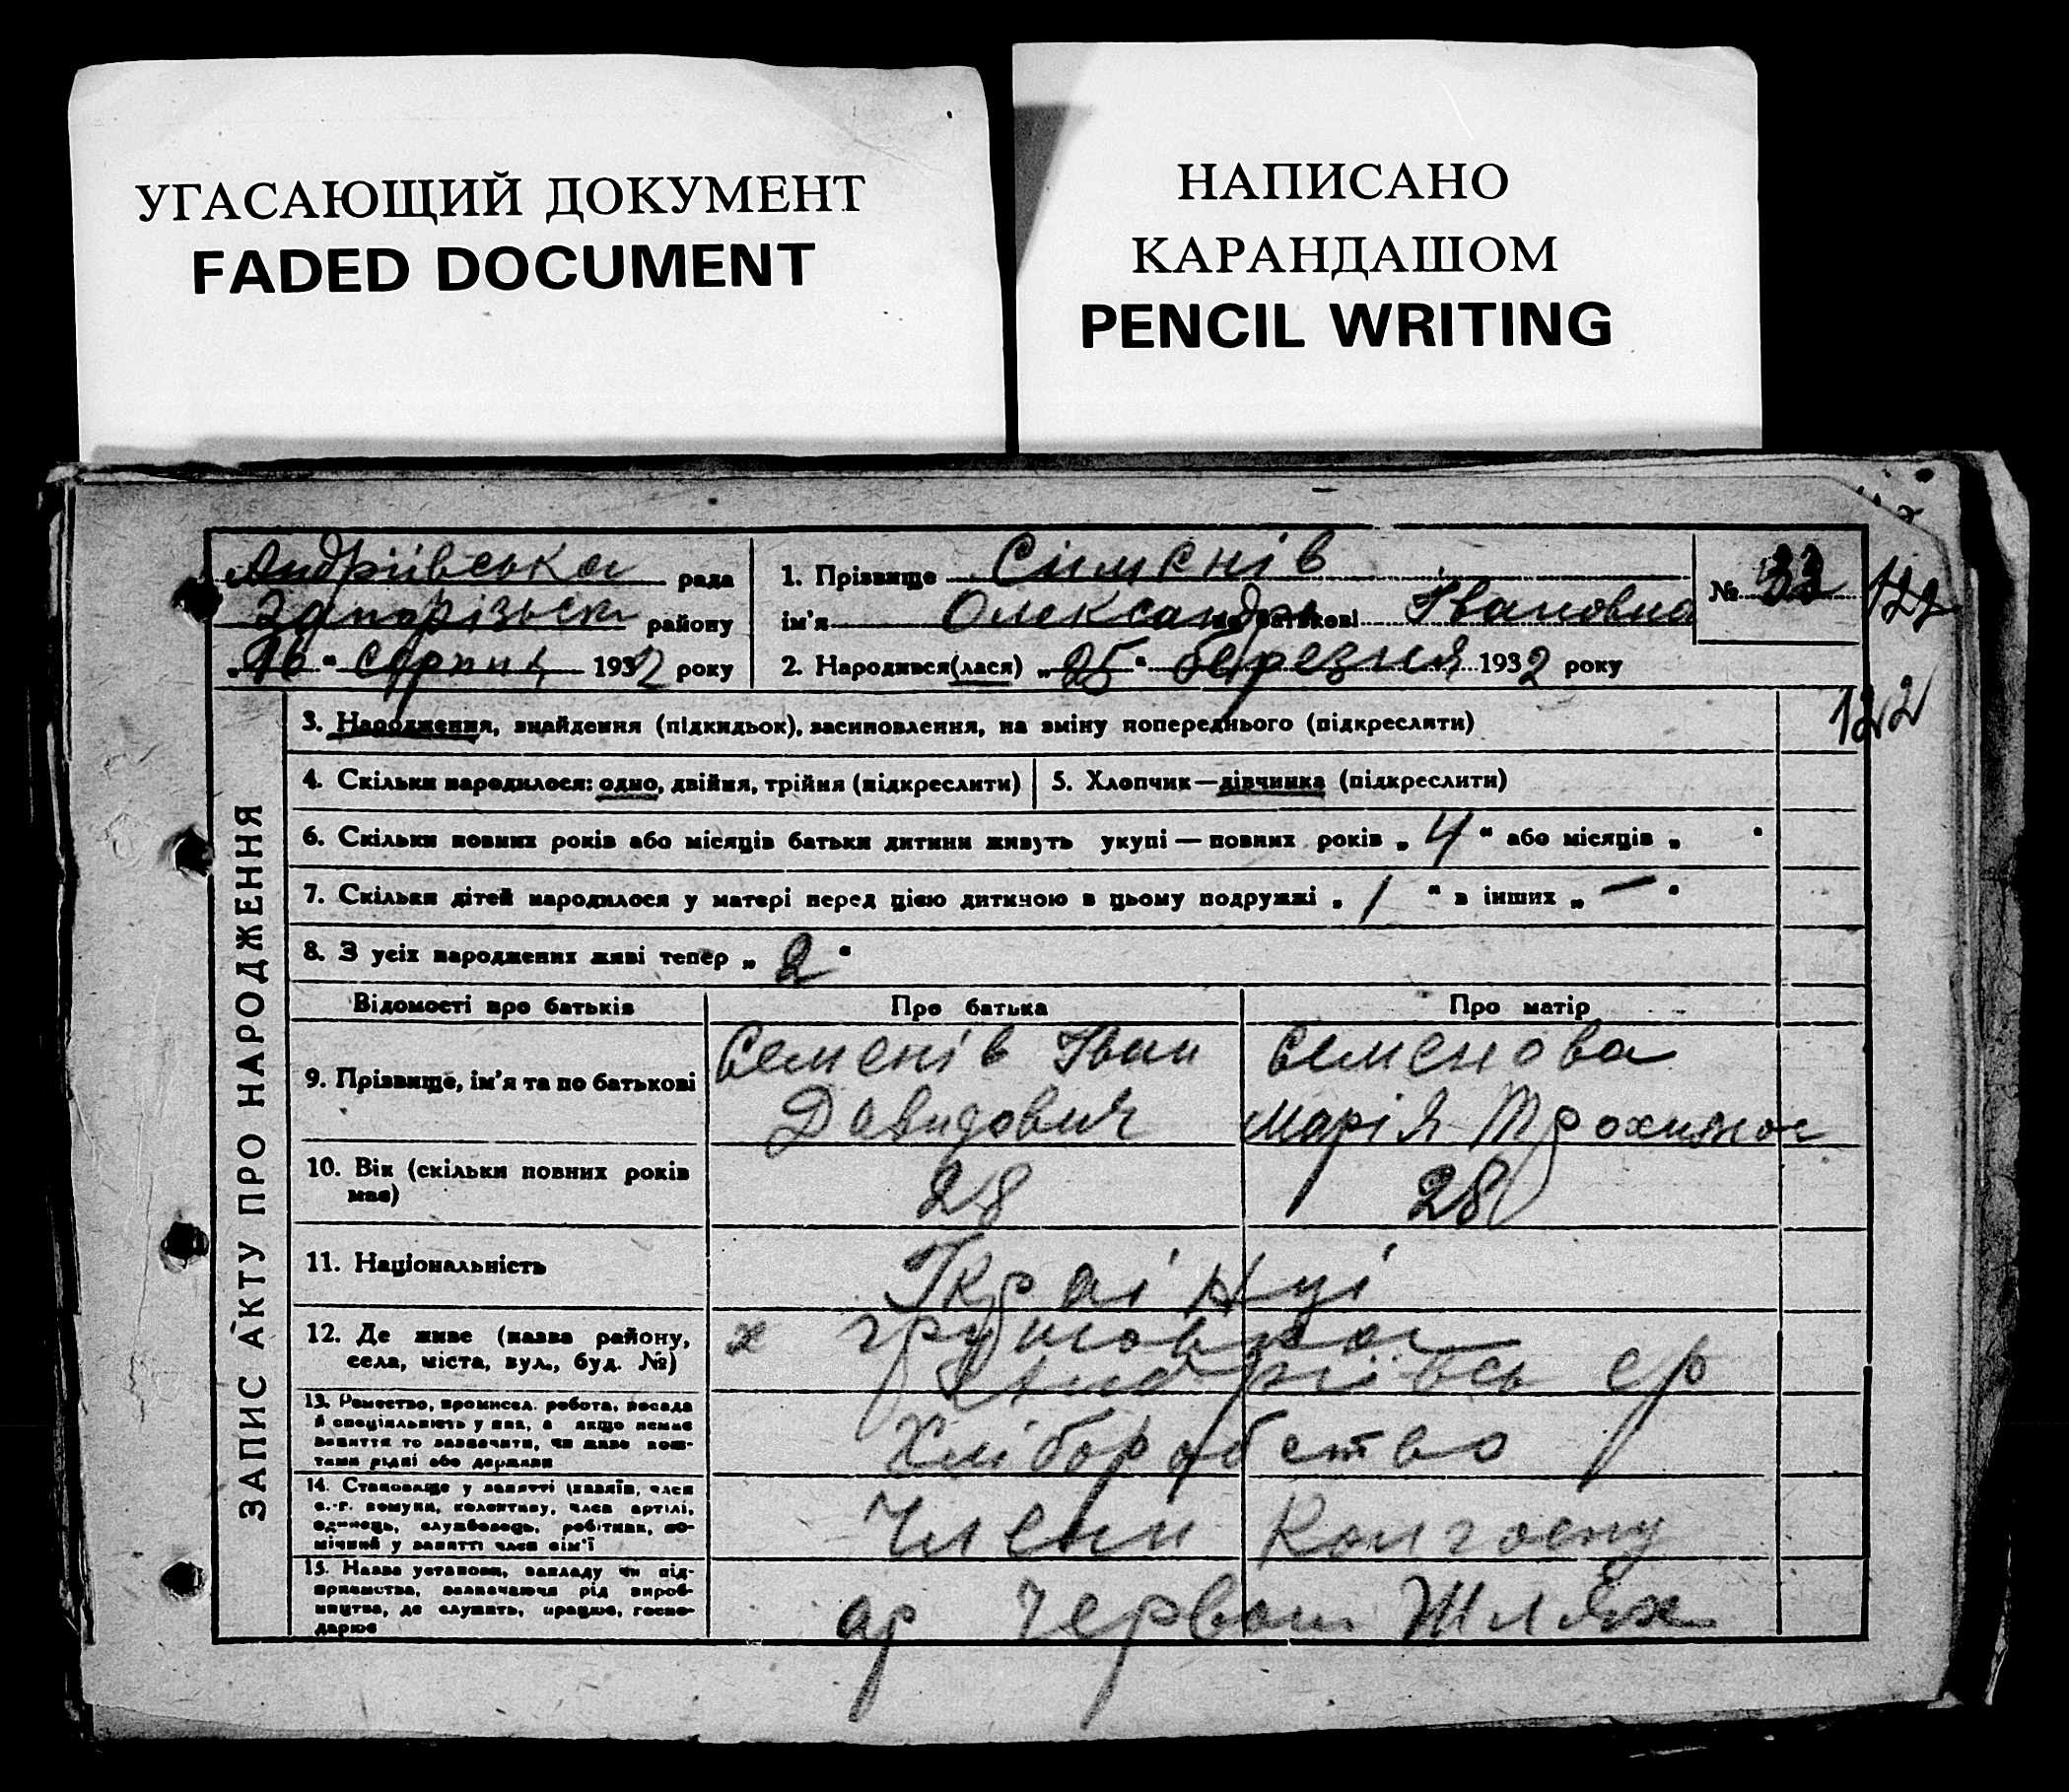 УГАСАЮЩИЙ ДОКУМЕНТ
FADED DOCUMENT
НАПИСАНО
КАРАНДАШОМ
PENCIL WRITING
Андріівська рада
Запорізьск району
„16“ серпня 1932 року
1. Прізвище Сименів
ім'я Олександра по батькові Івановна
2. Народився(лася) „25“ березня 1932 року
№ 33
122
122
ЗАПИС АКТУ ПРО НАРОДЖЕННЯ
3. Народження, знайдення (підкидьок), засиновлення, на зміну попереднього (підкреслити)
4. Скільки народилося: одно, двійня, трійня (підкреслити)
5. Хлопчик—дівчинка (підкреслити)
6. Скільки повних років або місяців батьки дитини живуть укупі — повних років „4“ або місяців „ “
7. Скільки дітей народилося у матері перед цією дитиною в цьому подружжі „1“ в інших „—“
8. З усіх народжених живі тепер „2“
Відомості про батьків
Про батька
Про матір
9. Прізвище, ім'я та по батькові
Семенів Іван
Давидович
Семенова
Марія
10. Вік (скільки повних років
має)
28
28
11. Національність
Країнці
12. Де живе (назва району,
села, міста, вул., буд. №)
х
Андріівсь ср
13. Ремество, промисел, робота, посада
й спеціальність у них, а якщо немає
заняття то зазначити, чи живе кош-
тами рідні або держави
Хліборобство
14. Становище у занятті (хазяїн, член
с.-г. комуни, колективу, член артілі,
одинець, службовець, робітник, по-
мічний у занятті член сім'ї
Члени Колгоспу
15. Назва установи, закладу чи під-
приємства, зазначаючи рід вироб-
ництва, де служить, працює, госпо-
дарює
ар Червон Шлях